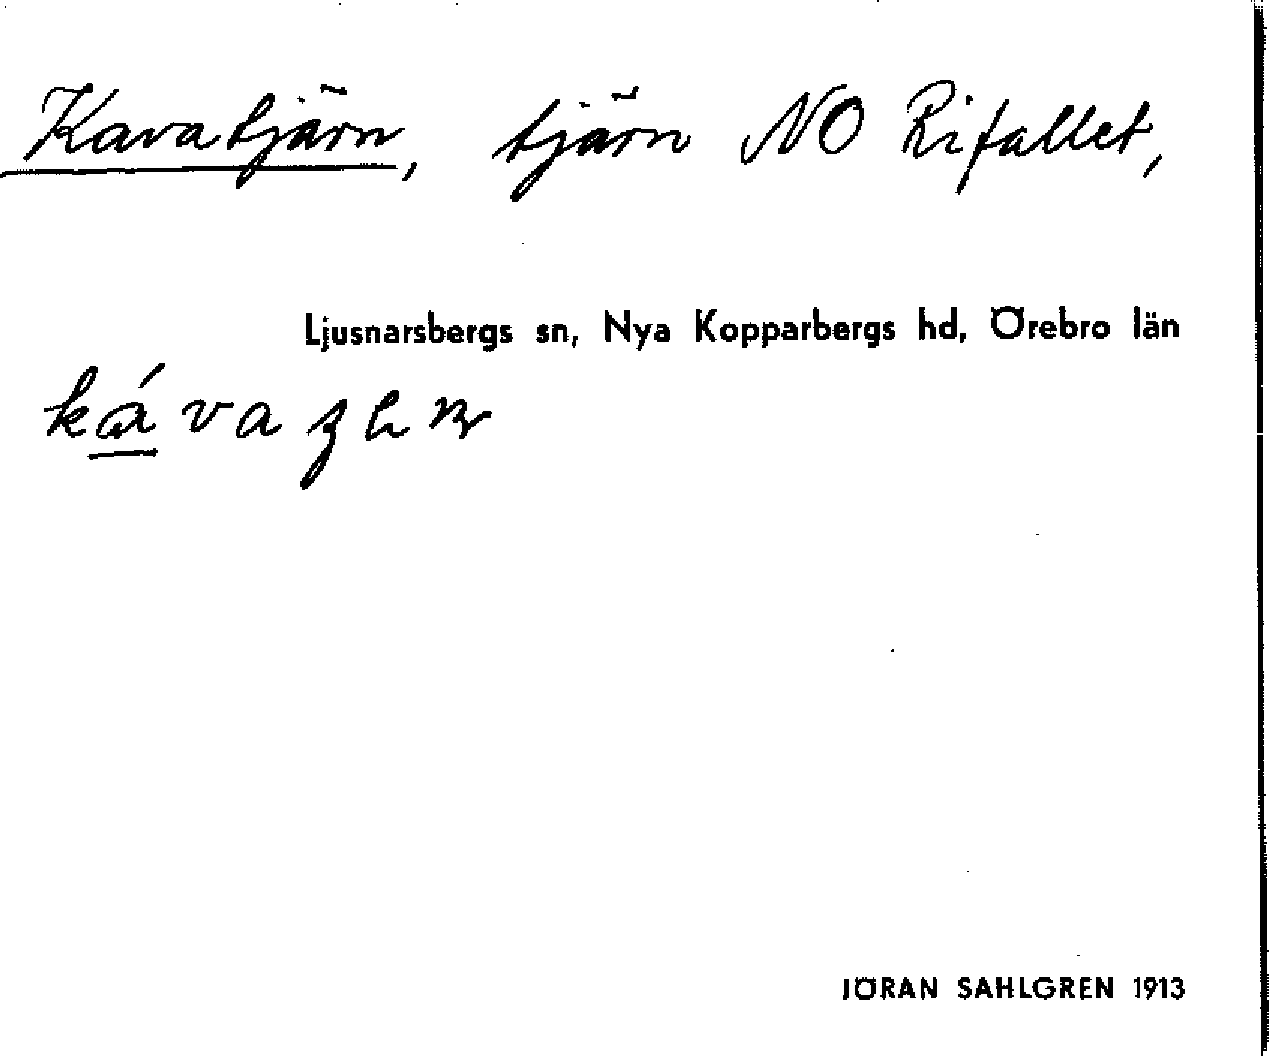 Kavatjärn, tjärn NO Rifallet,
Ljusnarsbergs sn, Nya Kopparbergs hd, Örebro län
JÖRAN SAHLGREN 1913